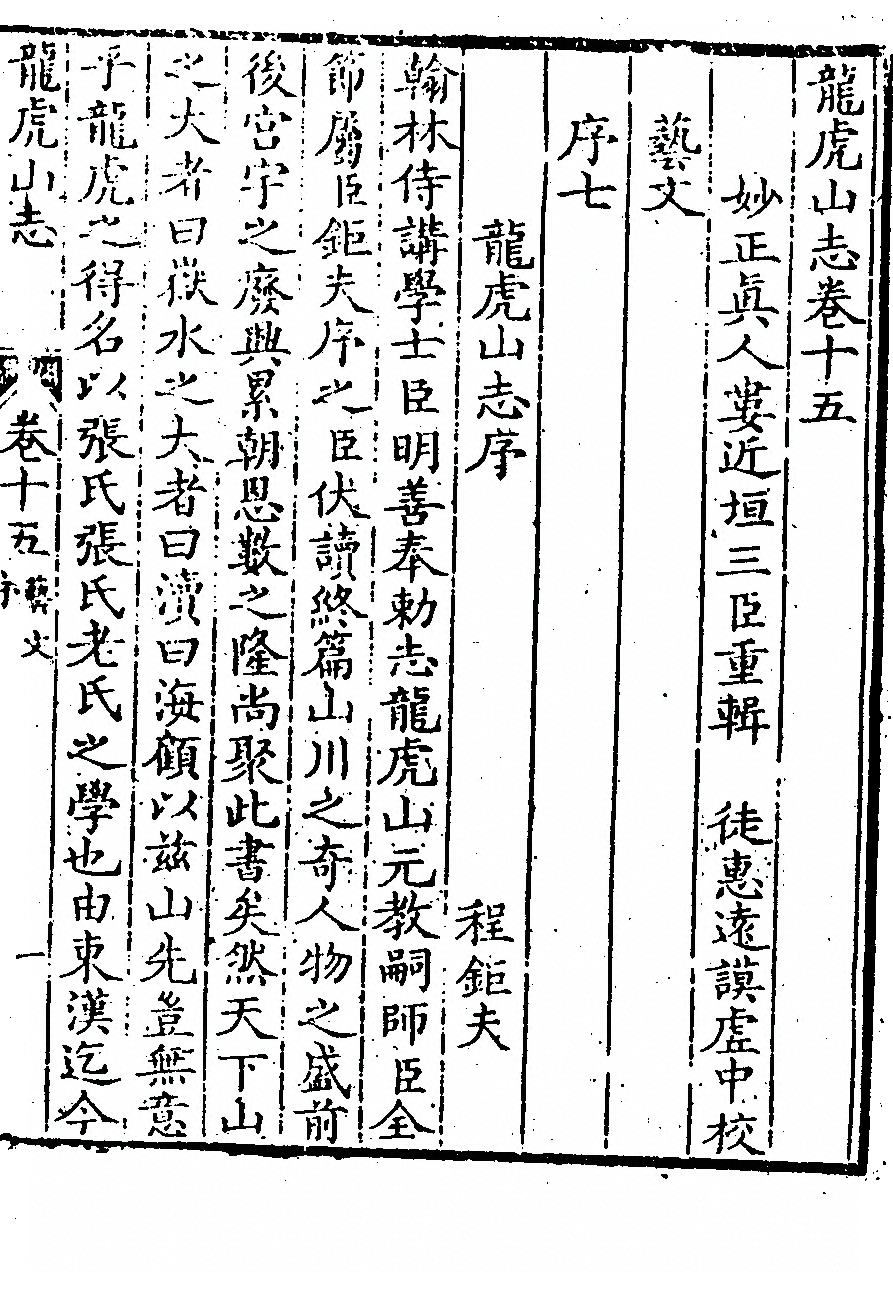 龍虎山志卷十五
妙正眞人婁近垣三臣重輯　徒惠遠謨虛中校
藝文
序七
龍虎山志序
程鉅夫
翰林侍講學士臣明善奉勅志龍虎山元教嗣師臣全
節屬臣鉅夫序之臣伏讀終篇山川之奇人物之盛前
後宫宇之廢興累朝恩數之隆尚聚此書矣然天下山
之大者曰嶽水之大者曰瀆曰海顧以兹山先豈無意
乎龍虎之得名以張氏張氏老氏之學也由東漢迄今
龍虎山志
卷十五
藝文
序
一